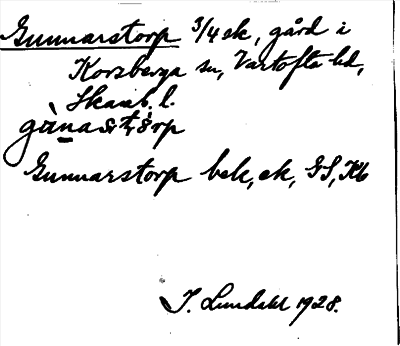 Gunnarstorp 3/4 ek, gård i
Korsberga sn, Vartofta hd,
Skarab. l.
gùnastorp
Gunnarstorp bek, ek, GS, Kb
I. Lundahl 1928.